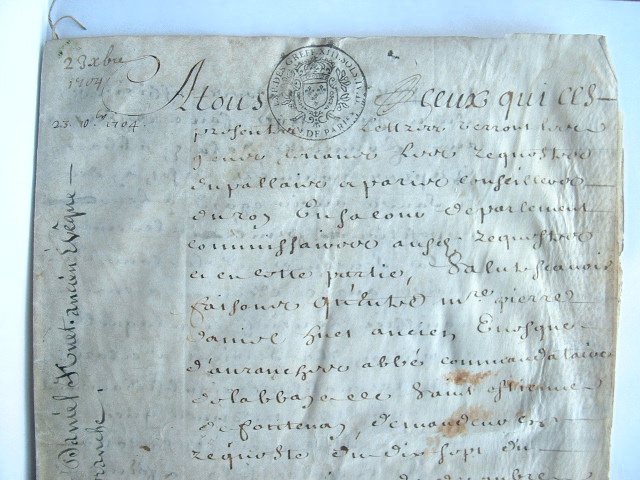 23 xbre
1704
23. Xbre 1704.
A tous ceux qui ces
presentes Lettres verront Les
gens tenans Les requestes
du pallais a paris Conseillers
du roy En sa Cour de parlement
commissaires aux requestes
et en cette partie, Salut scavoir
faisons qu'entre mre pierre
daniel huet ancien Evesque
d'avranches abbé commandataire
de l'abbaye de Saint estienne
de fontenay, demandeur
requeste du dix sept du
Daniel Huet. ancien Evêque